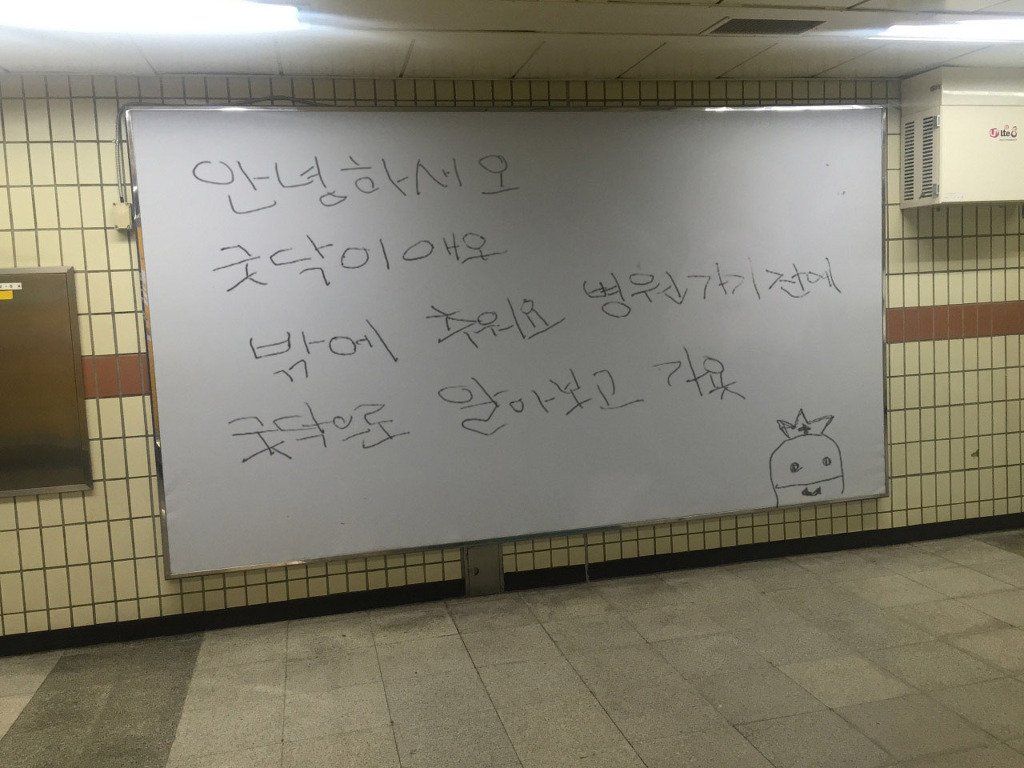 안녕하세요
굿닥이애요
밖에 추워요 병원가기전에
굿닥으로 알아보고 가욧
U+ lte